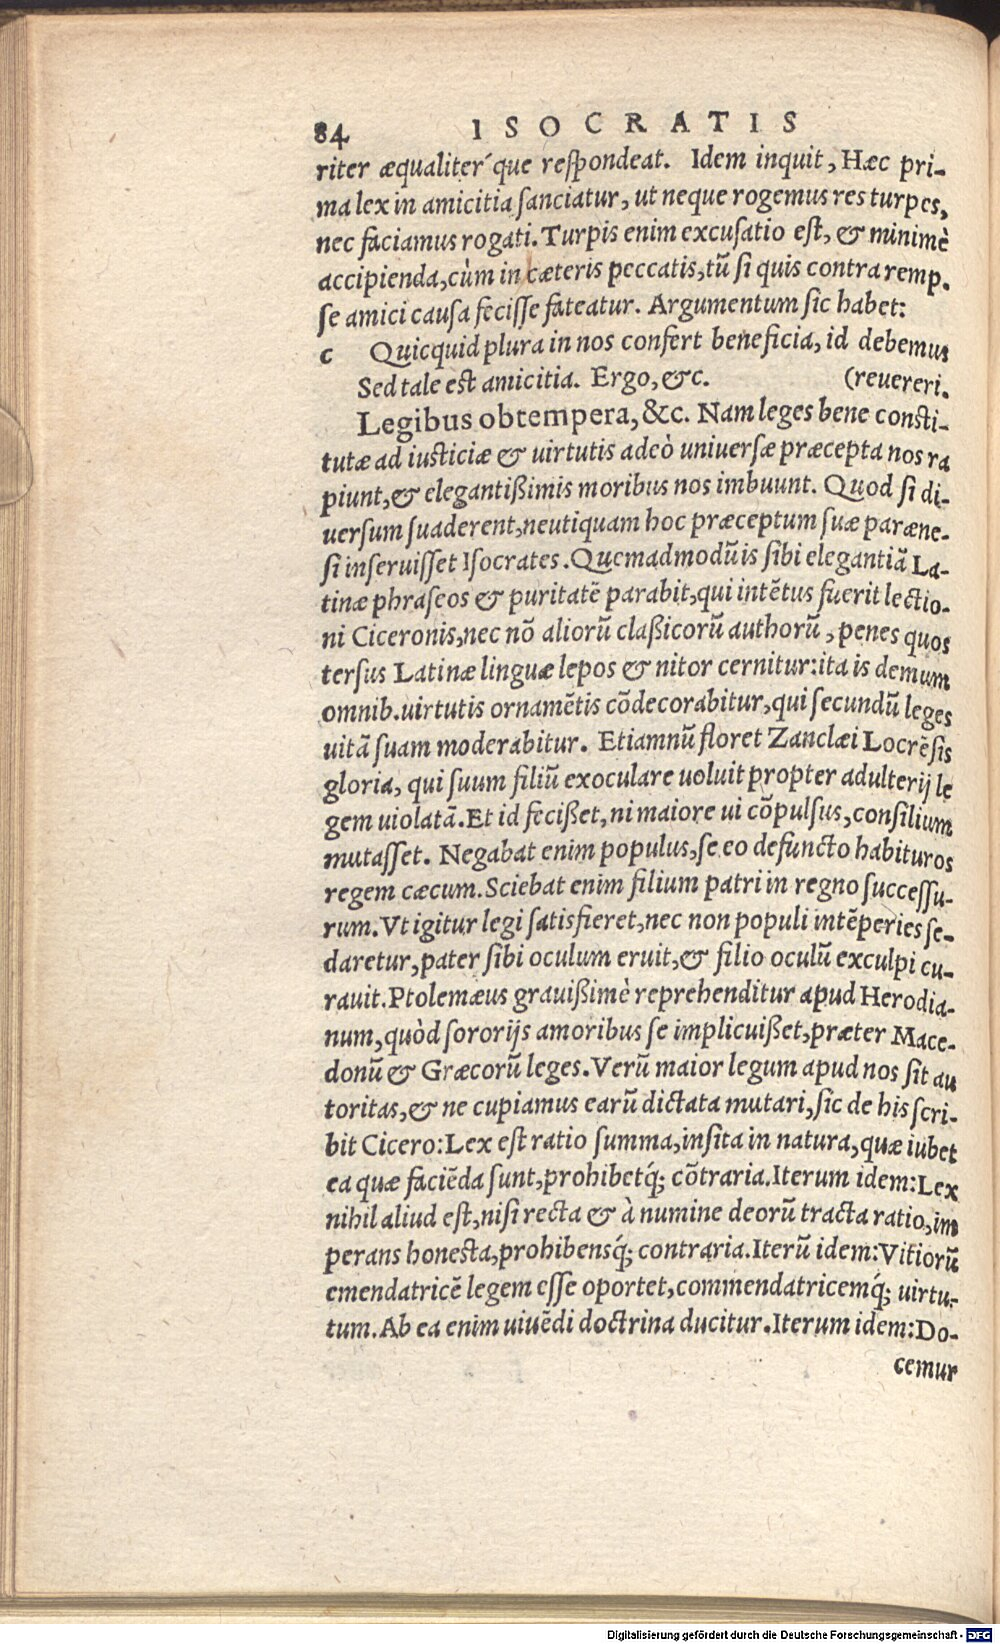 84 ISOCRATIS
riter æqualiter´que respondeat. Idem inquit, Hæc pri-
ma lex in amicitia sanciatur, ut neque rogemus res turpes,
nec faciamus rogati. Turpis enim excusatio est, & minimè
accipienda, cùm in cæteris peccatis, tũ si quis contra remp.
se amici causa fecisse fateatur. Argumentum sic habet:
c Quicquid plura in nos confert beneficia, id debemus
Sed tale est amicitia. Ergo, &c. (revereri.
Legibus obtempera, &c. Nam leges bene consti-
tutæ ad iusticiæ & uirtutis adeò universæ præcepta nos ra
piunt, & elegantißimis moribus nos imbuunt. Quod si di-
uersum suaderent, neutiquam hoc præceptum suæ paræne-
si inseruisset Isocrates. Quemadmodũ is sibi elegantiã La-
tinæ phraseos & puritatẽ parabit, qui intẽtus fuerit lectio-
ni Ciceronis, nec nõ aliorũ claßicorũ authorũ, penes quos
tersus Latinæ linguæ lepos & nitor cernitur: ita is demum
omnib. uirtutis ornamẽtis cõdecorabitur, qui secundũ leges
uitã suam moderabitur. Etiamnũ floret Zanclæi Locrẽsis
gloria, qui suum filiũ exoculare uoluit propter adulterij le
gem uiolatã. Et id fecißet, ni maiore ui cõpulsus, consilium
mutasset. Negabat enim populus, se eo defuncto habituros
regem cæcum. Sciebat enim filium patri in regno successu-
rum. Vt igitur legi satisfieret, nec non populi intẽperies se-
daretur, pater sibi oculum eruit, & filio oculũ exculpi cu-
rauit. Ptolemæus grauißimè reprehenditur apud Herodia-
num, quòd sororijs amoribus se implicuißet, præter Mace-
donũ & Græcorũ leges. Verũ maior legum apud nos sit au
toritas, & ne cupiamus earũ dictata mutari, sic de his scri-
bit Cicero: Lex est ratio summa, insita in natura, quæ iubet
ea quæ faciẽda sunt, prohibetq́; cõtraria. Iterum idem: Lex
nihil aliud est, nisi recta & à numine deorũ tracta ratio, im
perans honesta, prohibensq́; contraria. Iterũ idem: Vitiorũ
emendatricẽ legem esse oportet, commendatricemq́; uirtu-
tum. Ab ea enim uiuẽdi doctrina ducitur. Iterum idem: Do-
cemur
Digitalisierung gefördert durch die Deutsche Forschungsgemeinschaft - DFG